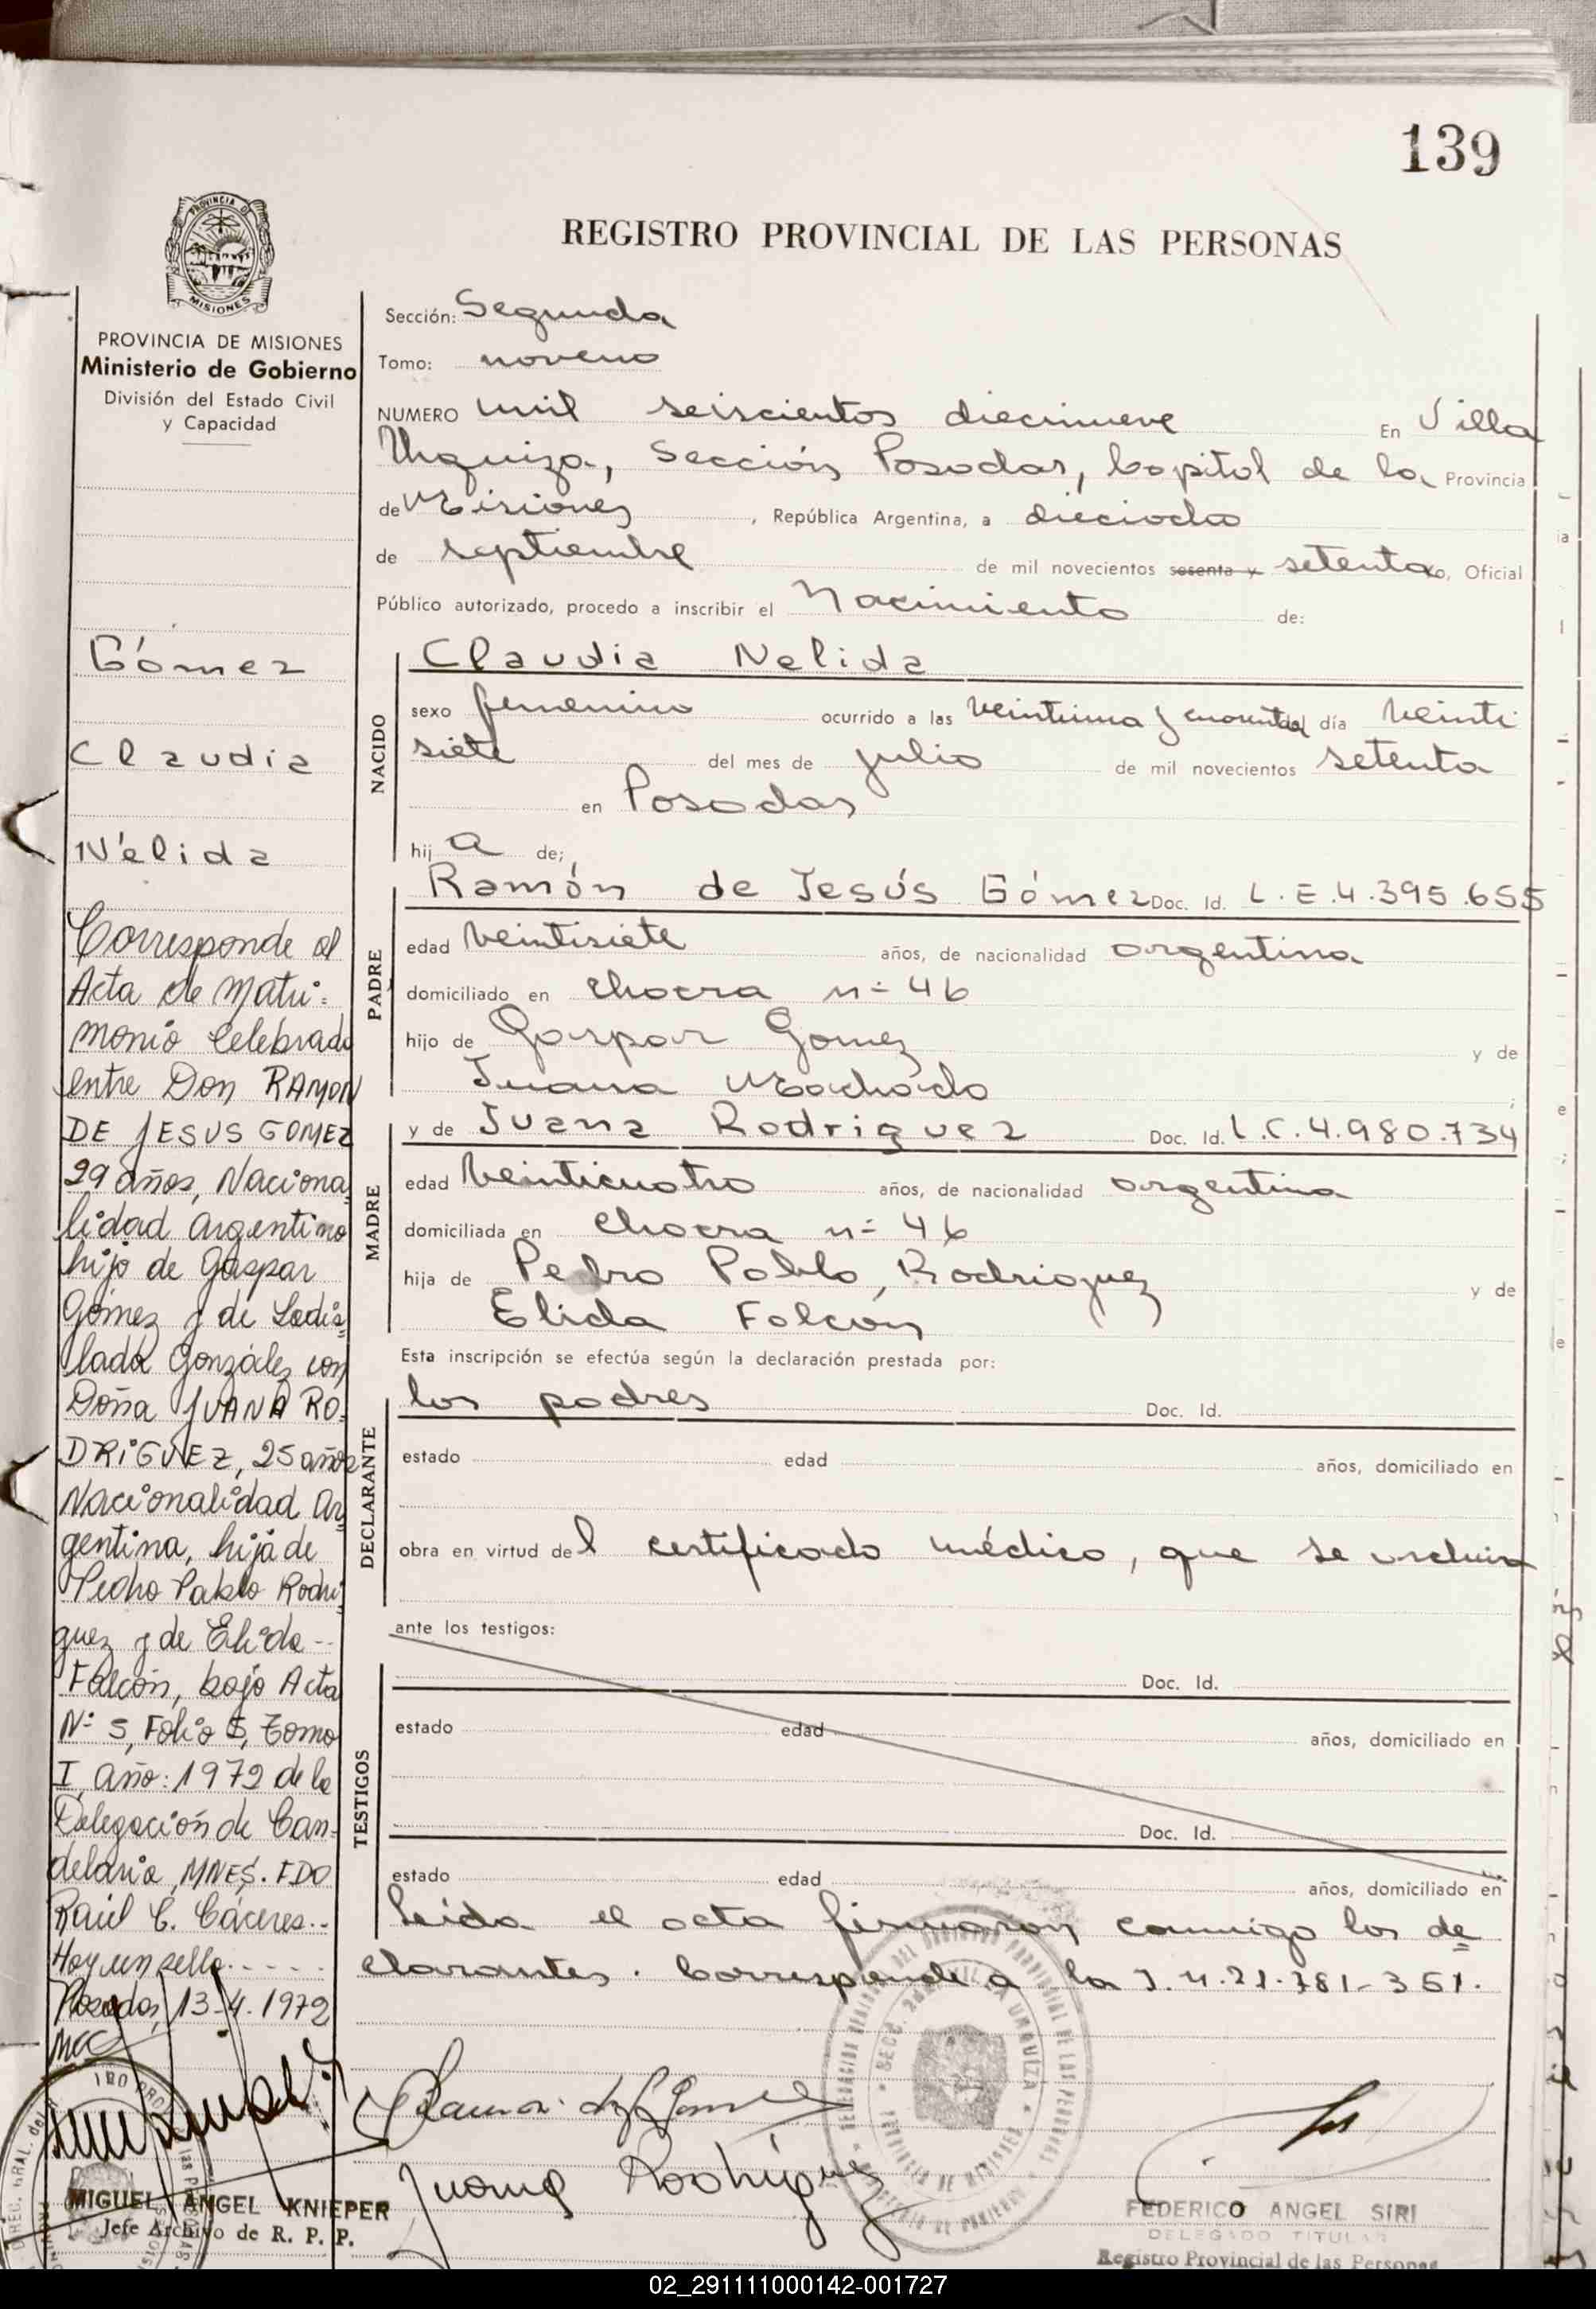 139
REGISTRO PROVINCIAL DE LAS PERSONAS
PROVINCIA DE
MISIONES
PROVINCIA DE MISIONES
Ministerio de Gobierno
División del Estado Civil
y Capacidad
Gómez
Claudia
Nélida
Corresponde al
Acta de Matri=
monio Celebrado
entre Don RAMON
DE JESUS GOMEZ
29 años, Naciona
lidad Argentino
hijo de Gaspar
Gómez y de Ladis=
lada González con
Doña JUANA RO=
DRIGUEZ, 25 años
Nacionalidad Ar
gentina, hija de
Pedro Pablo Rodri
guez y de Elida --
Falcón, bajo Acta
Nº 5, Folio 5, Tomo
I, año: 1972 de la
Delegación de Can-
delaria, MNES. FDO
Raúl C. Cáceres.-
Hay un sello.- - - -
Posadas, 13-4-1972
MIGUEL ANGEL KNIEPER
Jefe Archivo de R. P. P.
Sección: Segunda
Tomo: noveno
NUMERO mil seiscientos diecinueve En Villa
Urquiza, Sección Posadas, Capital de la Provincia
de Misiones, República Argentina, a dieciocho
de septiembre de mil novecientos sesenta y setenta, Oficial
Público autorizado, procedo a inscribir el Nacimiento de:
NACIDO
Claudia Nelida
sexo femenino ocurrido a las veintiuna y cuarenta día veinti
siete del mes de julio de mil novecientos setenta
en Posadas
hij a de;
PADRE
Ramón de Jesús Gómez Doc. Id. L.E.4.395.655
edad veintisiete años, de nacionalidad argentina
domiciliado en chacra nº 46
hijo de Gaspar Gomez y de
Juana Machado ;
MADRE
y de Juana Rodriguez Doc. Id. L.C.4.980.734
edad veinticuatro años, de nacionalidad argentina
domiciliada en chacra nº 46
hija de Pedro Pablo Rodriguez y de
Elida Falcón
Esta inscripción se efectúa según la declaración prestada por:
DECLARANTE
los padres Doc. Id.
estado edad años, domiciliado en
obra en virtud del certificado médico, que se archiva
ante los testigos:
TESTIGOS
Doc. Id.
estado edad años, domiciliado en
Doc. Id.
estado edad años, domiciliado en
Leida el acta firmaron conmigo los de=
clarantes. Corresponde a la
Juana Rodriguez
FEDERICO ANGEL SIRI
DELEGADO TITULAR
Registro Provincial de las Personas
02_291111000142-001727